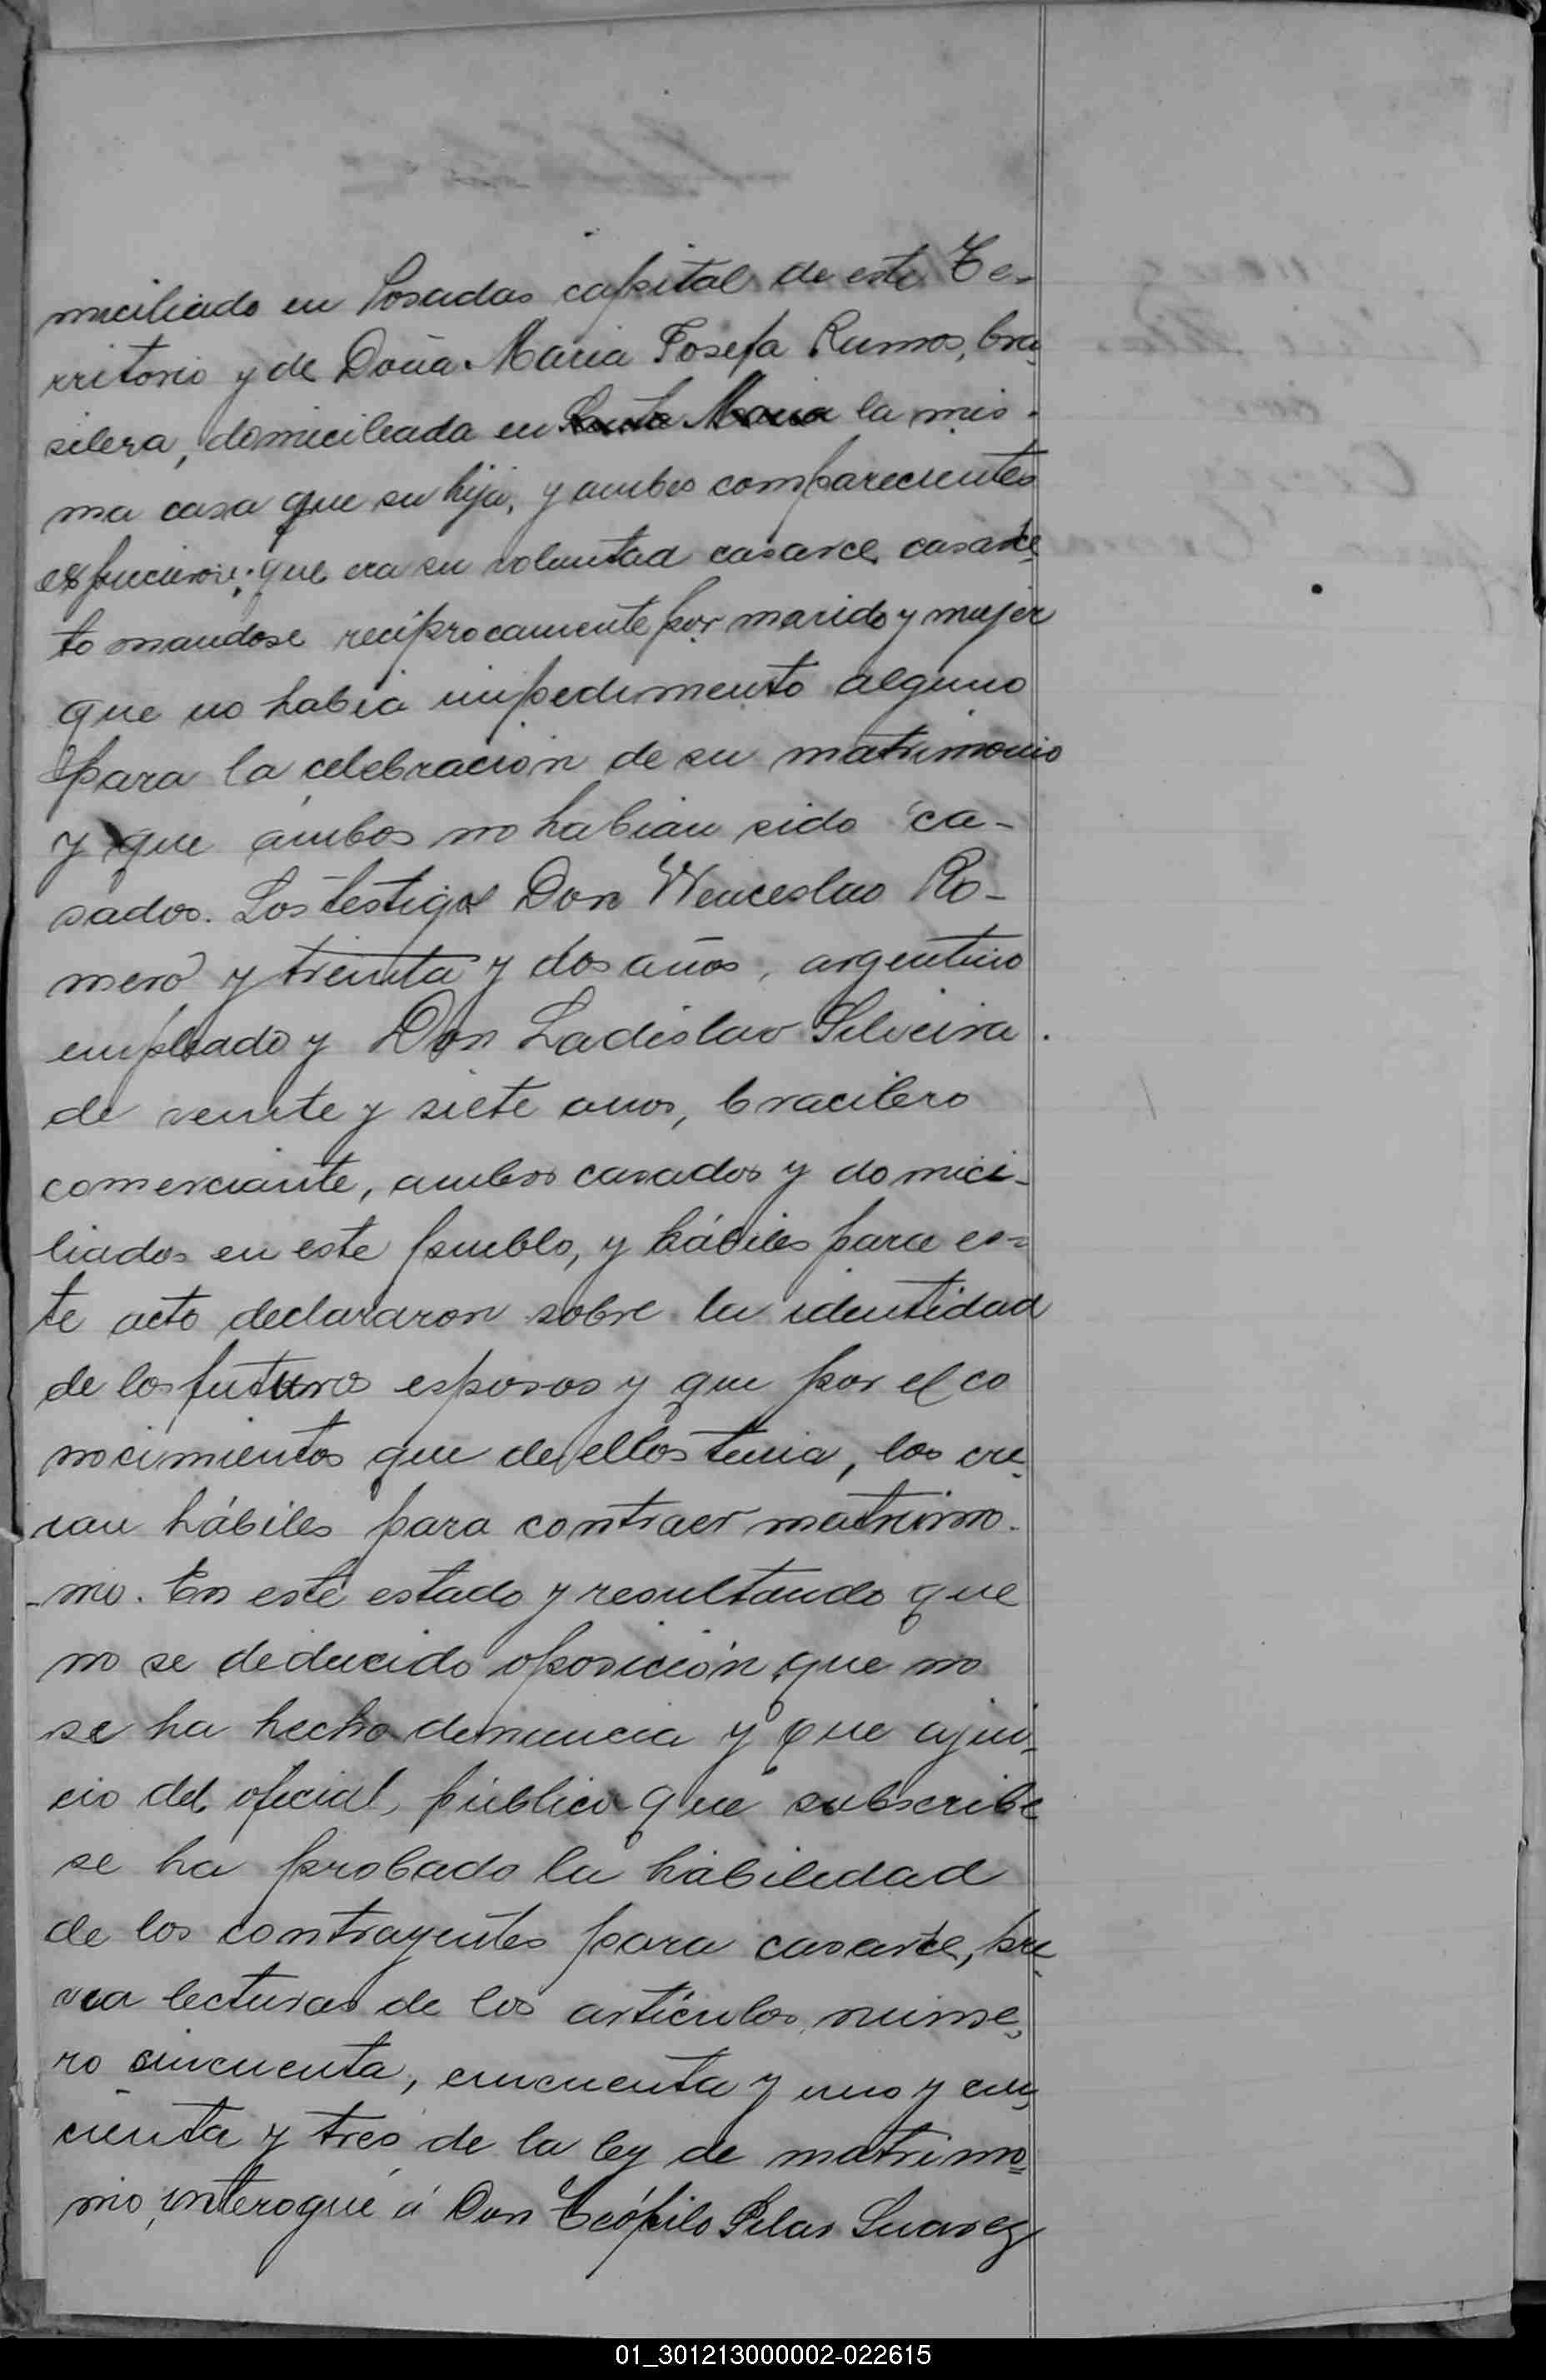 miciliado en Posadas capital de este Te-
rritorio y de Doña Maria Josefa Rumos, bra
silera, domiciliada en Santa Maria la mis-
ma casa que su hija, y ambos comparecientes
expucieron; que era su voluntad casarce casarce
tomandose reciprocamente por marido y mujer
que no habia impedimento alguno
para la celebracion de su matrimonio
y que ambos no habian sido ca-
sados. Los testigos Don Wenceslao Ro-
mero y treinta y dos años, argentino
empleado y Don Ladislao Silveira.
de veinte y siete anos, bracilero
comerciante, ambos casados y domici-
liados en este pueblo, y hábiles para es-
te acto declararon sobre la identidad
de los futuros esposos y que por el co
nocimientos que de ellos tenia, los cre
ian hábiles para contraer matrimo-
-nio. En este estado y resultando que
no se deducido oposición que no
se ha hecho denuncia y que ajui-
cio del oficial, público que subscribe
se ha probado la habiledad
de los contrayentes para casarce, pre
via lecturas de los artículos nume-
ro cincuenta, cincuenta y uno y cin
cuenta y tres de la ley de matrimo=
nio, interogué á Don Teófilo Pilar Suarez
01_301213000002-022615